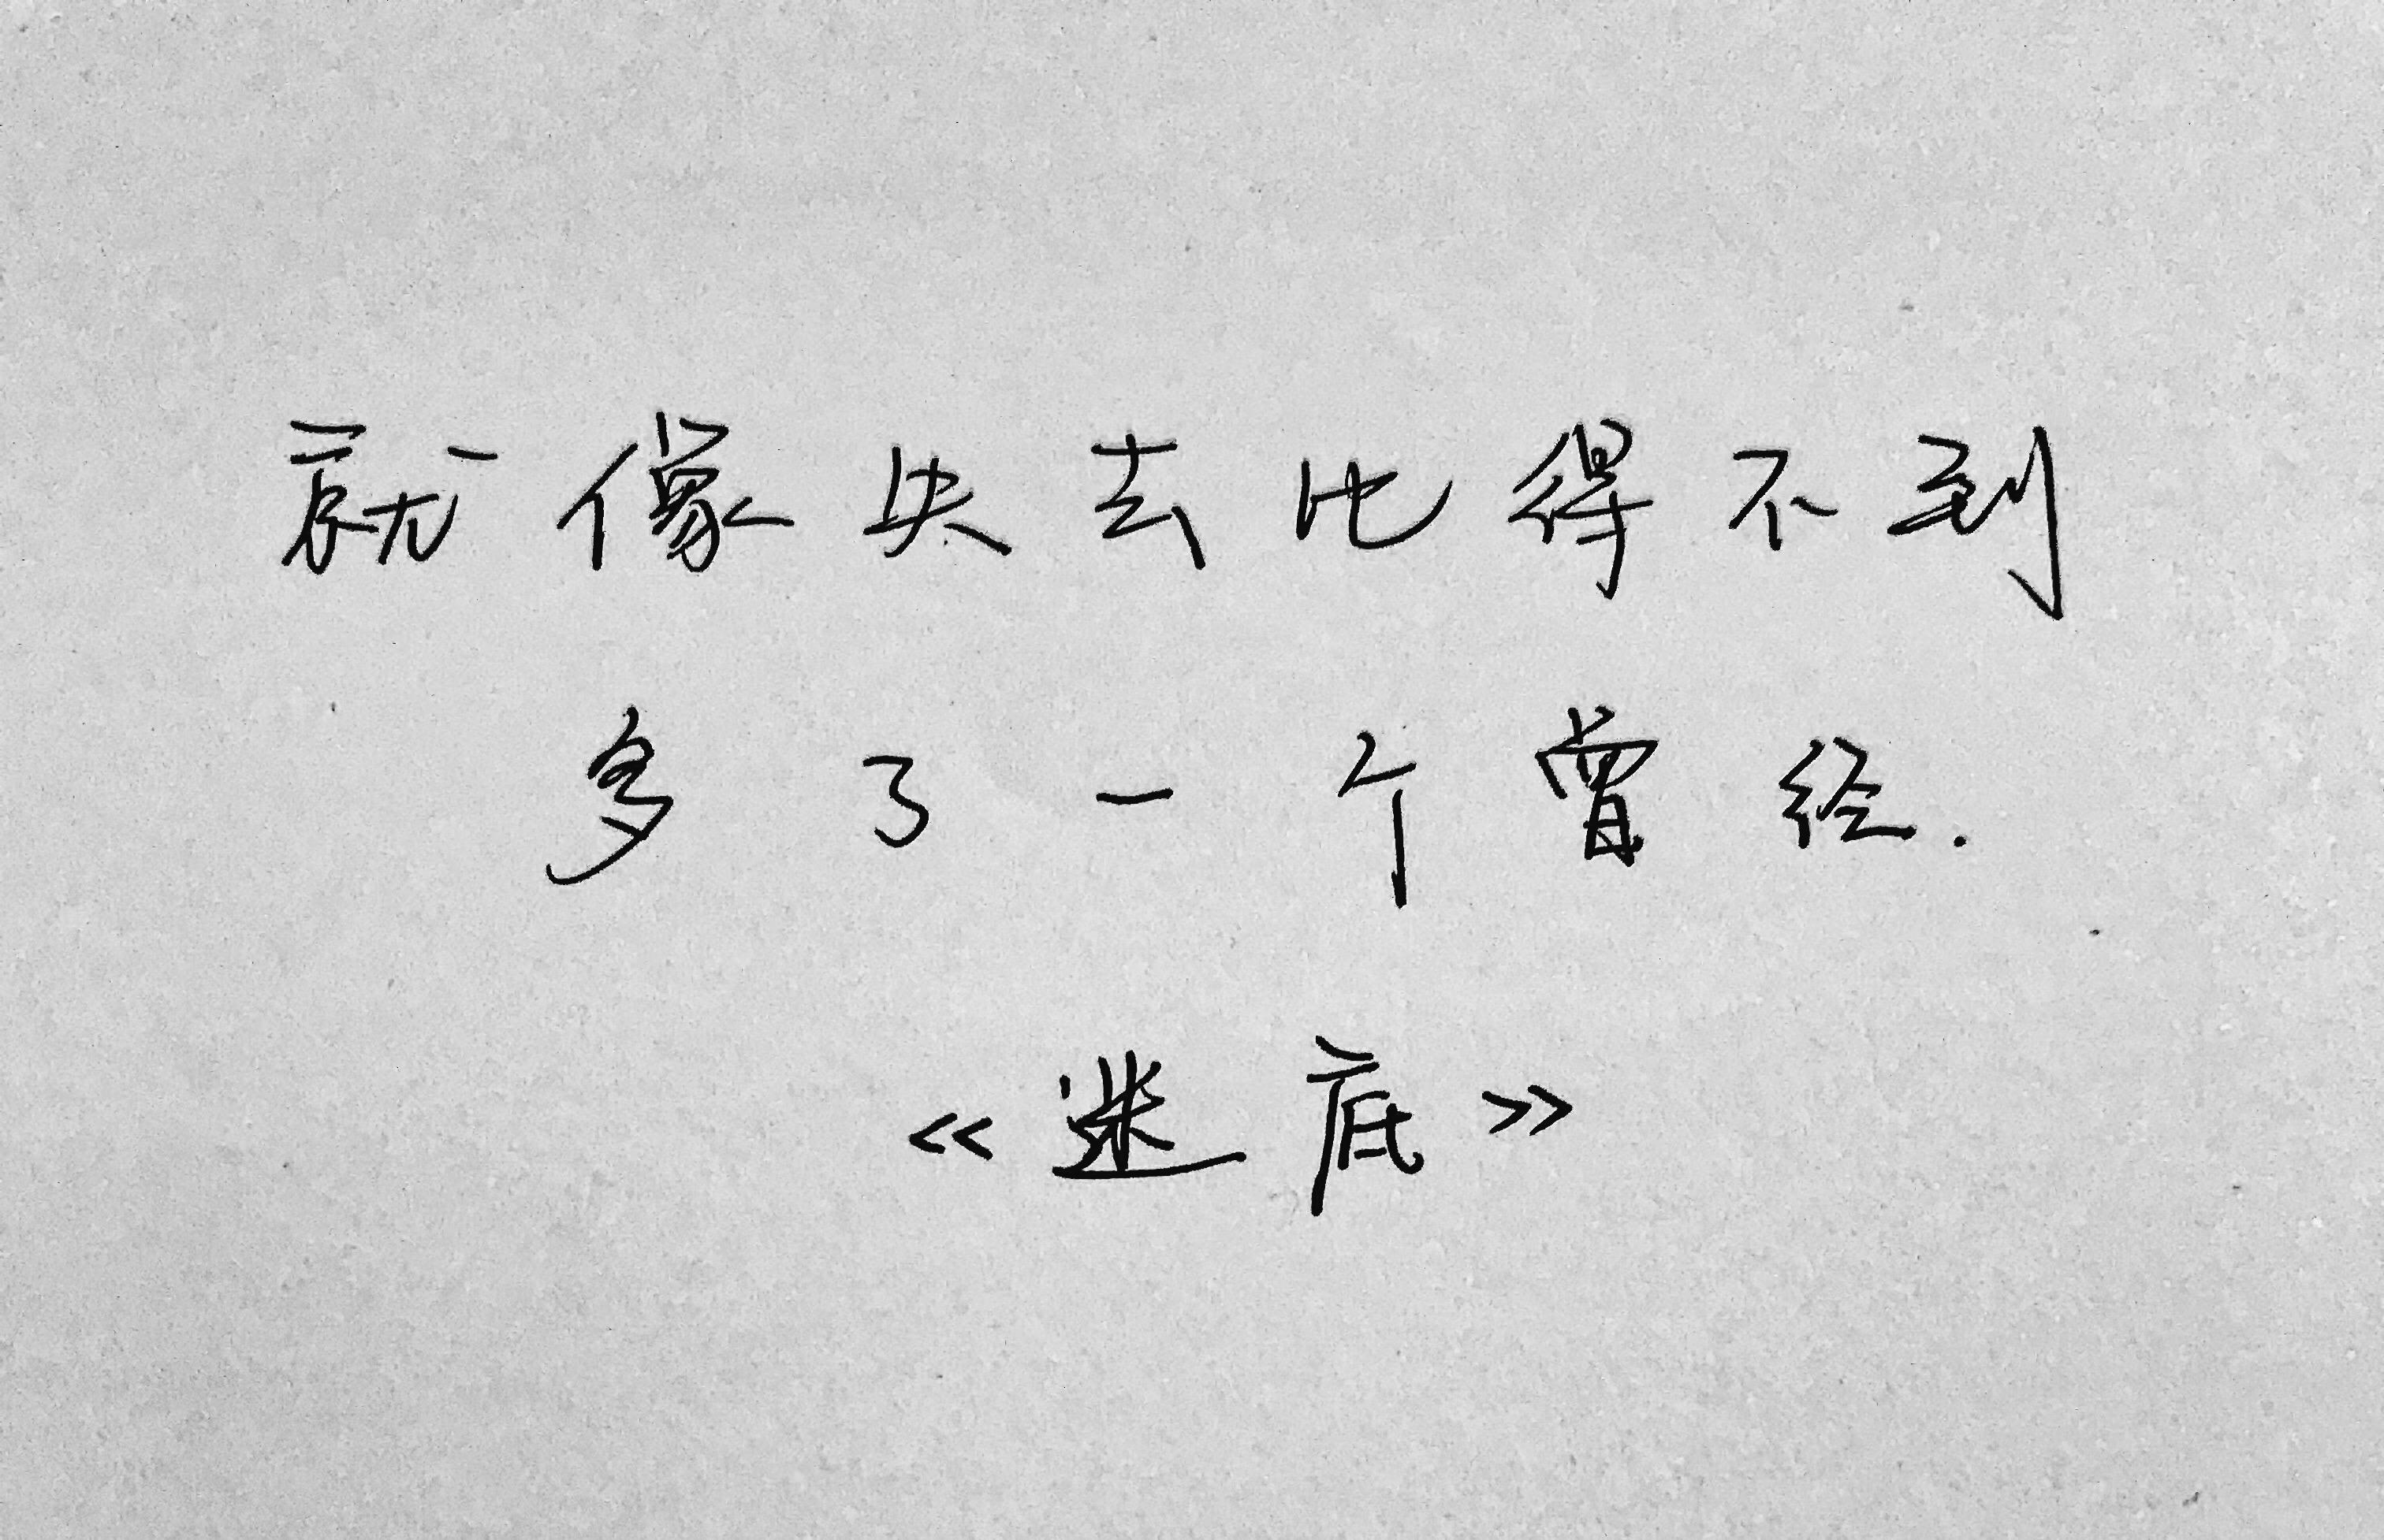 就像失去比得不到
多了一个曾经.
《迷底》